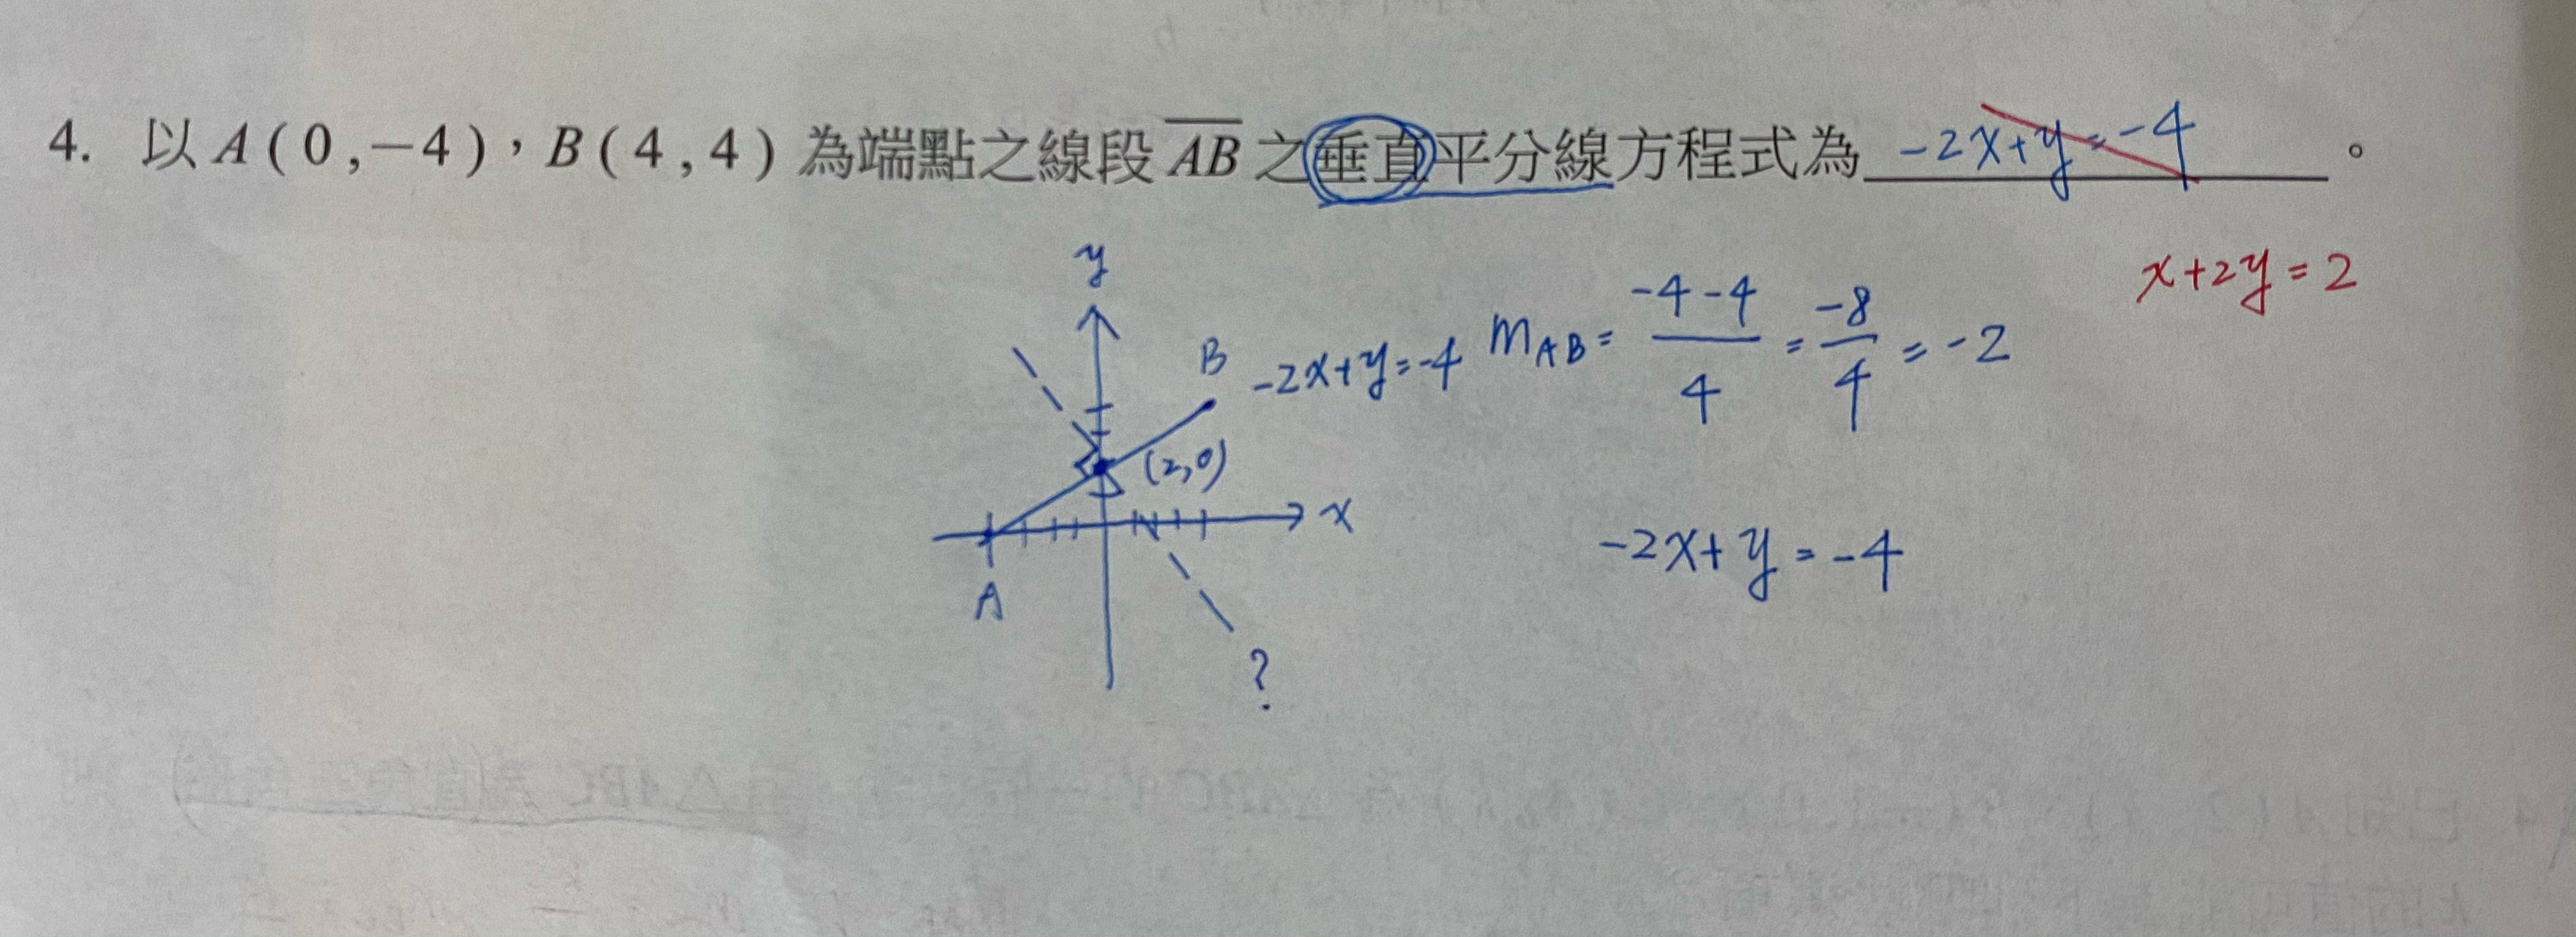 4. 以 A ( 0 , −4 ) , B ( 4 , 4 ) 為端點之線段 \overline{AB} 之垂直平分線方程式為 -2x+y=-4 。
x+2y=2
y
B -2x+y=-4 m_{AB} = \frac{-4-4}{4} = \frac{-8}{4} = -2
(2,0)
x
-2x+y=-4
A
?